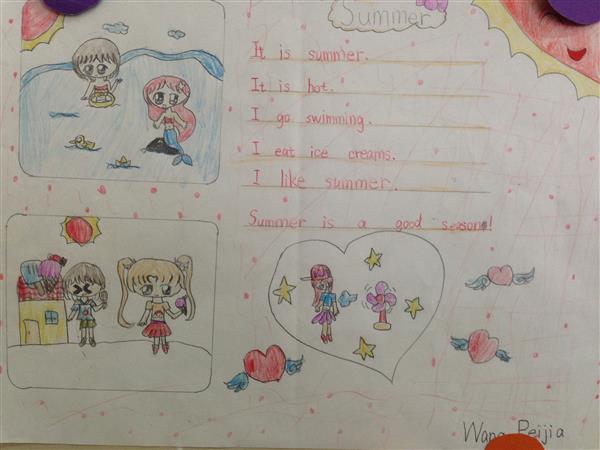 Summer
It is summer.
It is hot.
I go swimming.
I eat ice creams.
I like summer.
Summer is a good season!
Wang Peijia